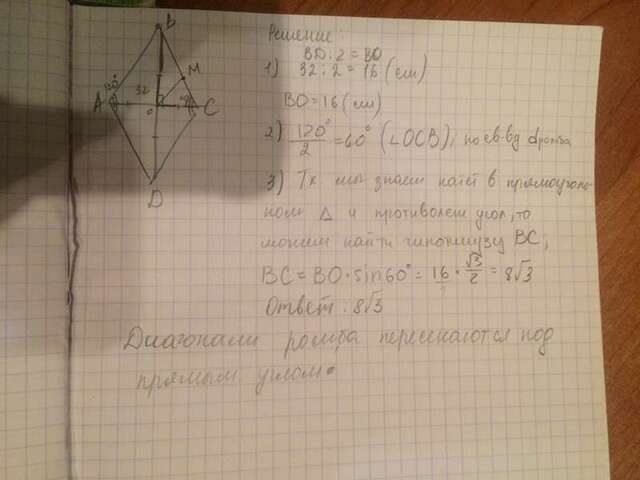 B
120°
M
A
32
O
C
D
Решение:
BD:2 = BO
1) 32:2 = 16 (см)
BO = 16 (см)
2) 120°/2 = 60° (∠OCB), по св-ву ромба
3) Тк мы знаем катет в прямоуголь-
ном △ и противолеж угол, то
можем найти гипотенузу BC;
BC = BO · sin60° = 16 · √3/2 = 8√3
Ответ: 8√3
Диагонали ромба пересекаются под
прямым углом.